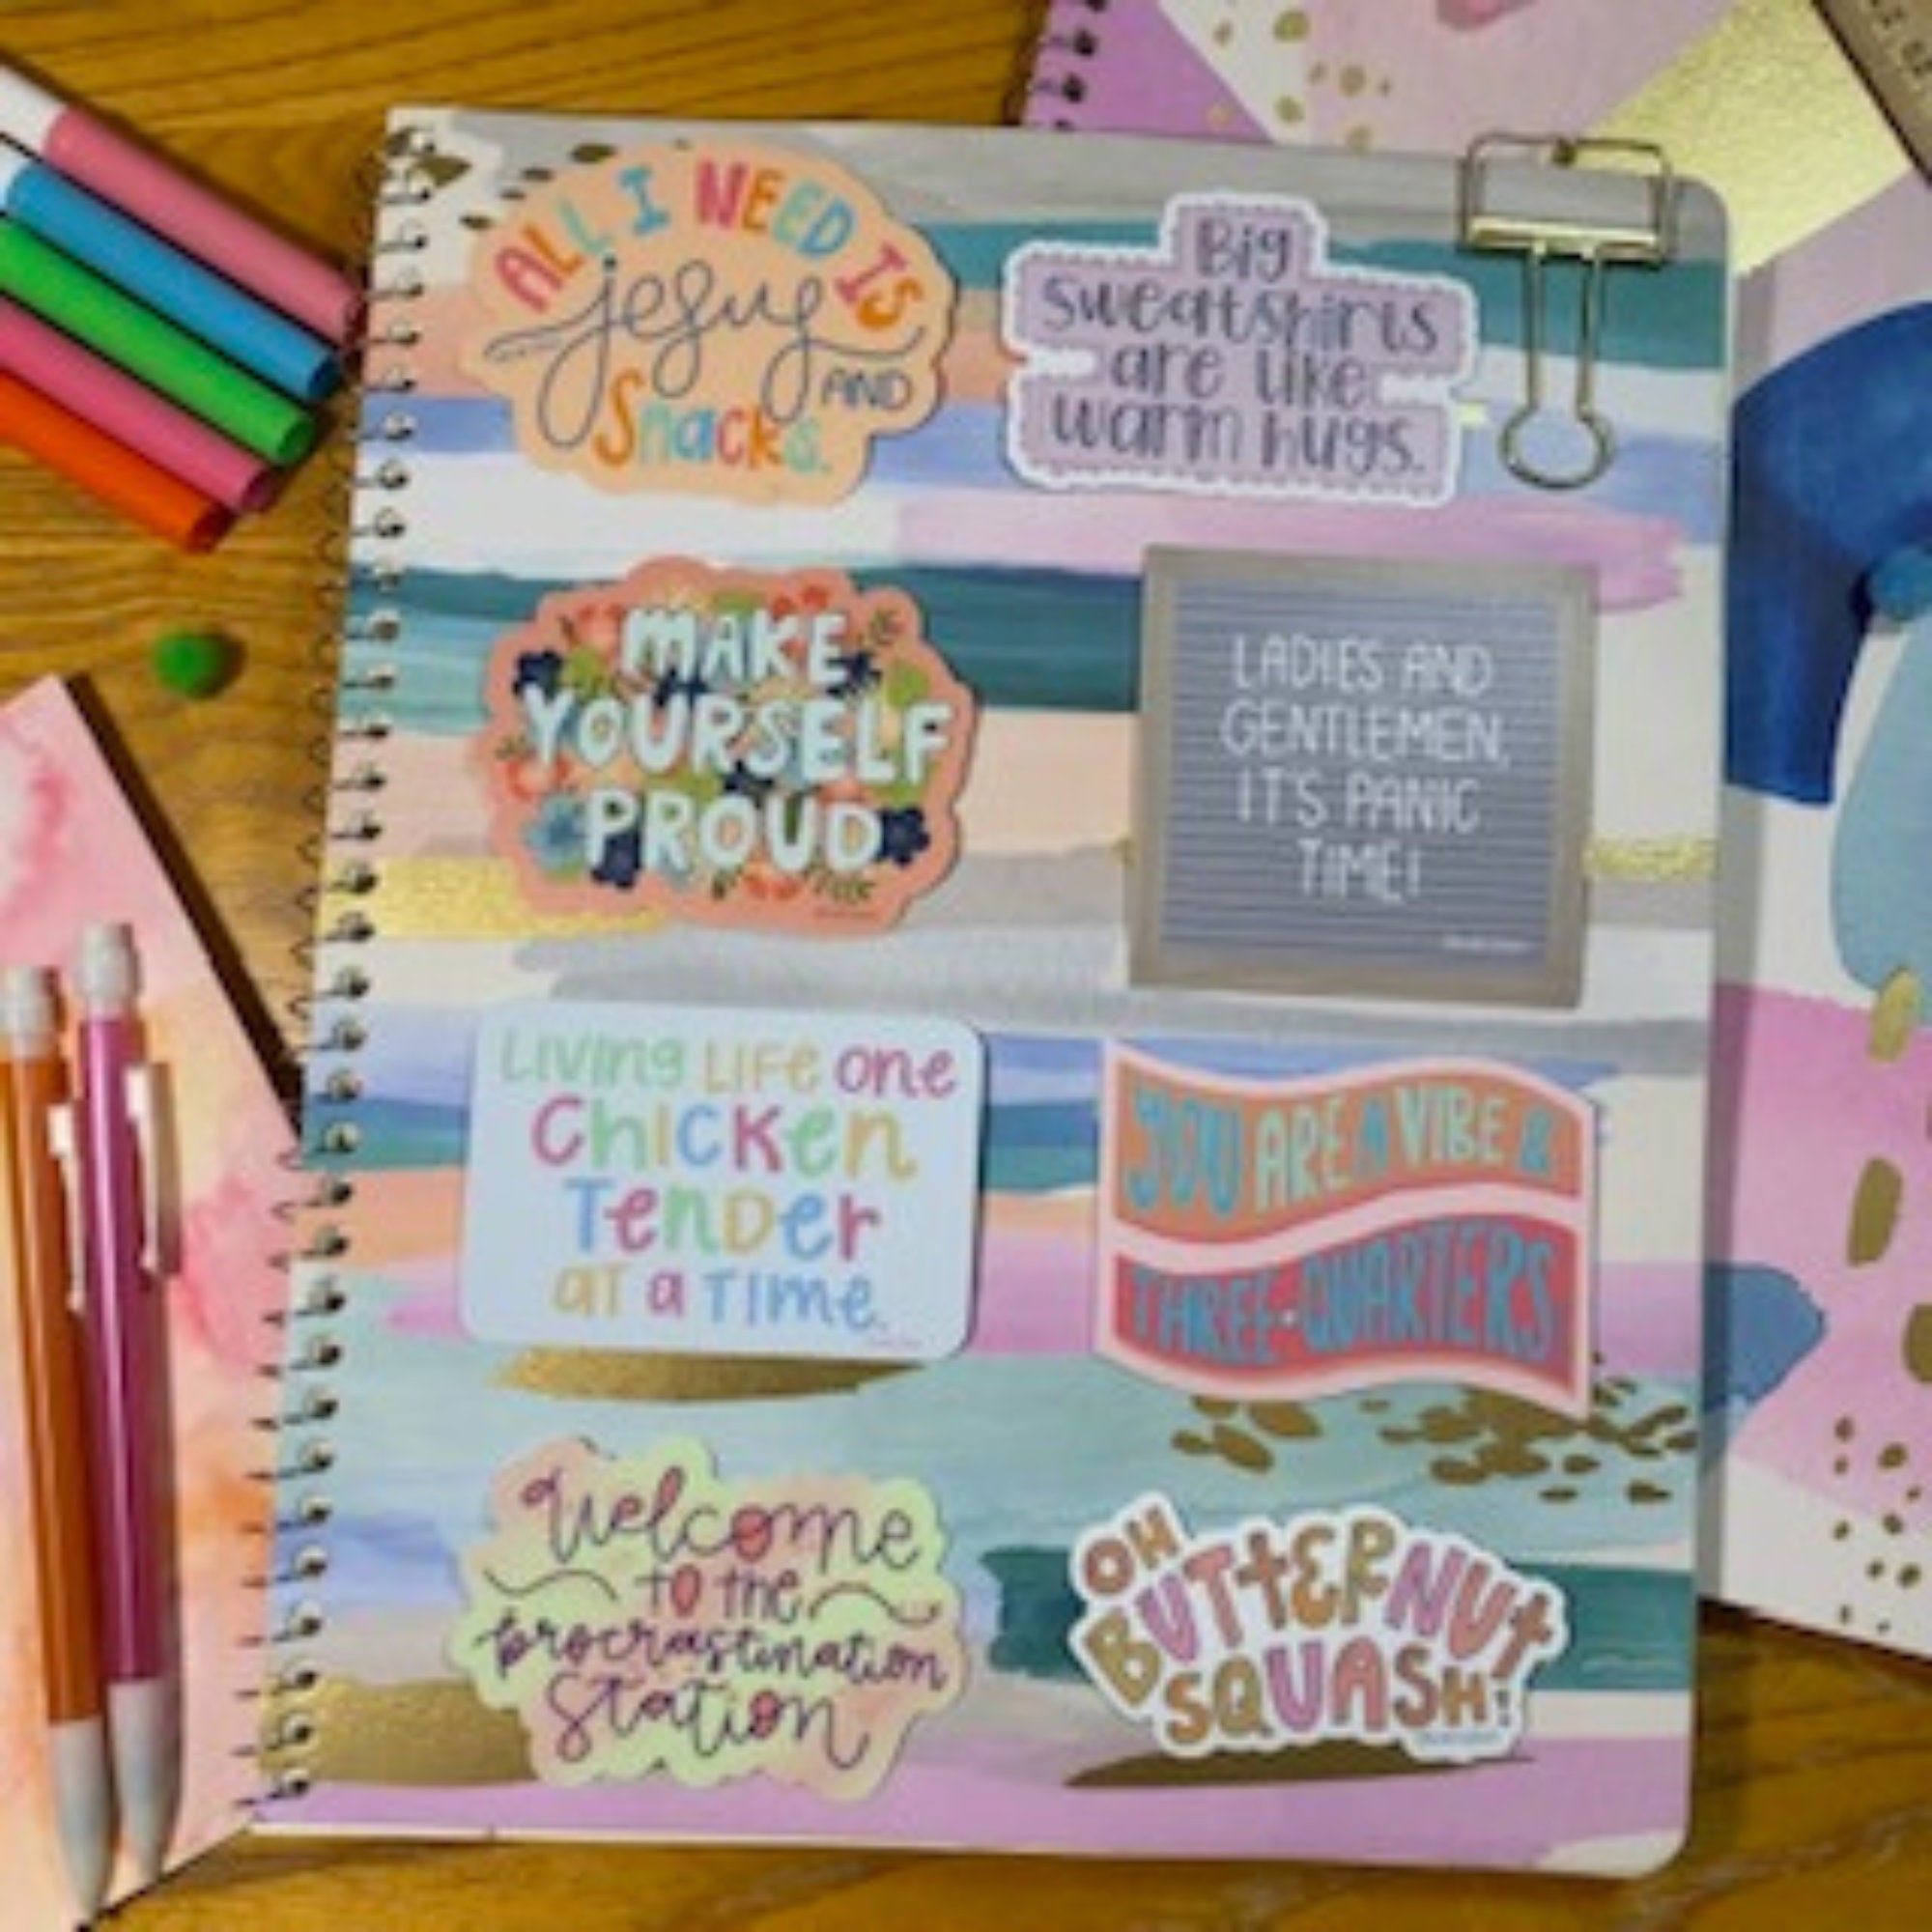 ALL I NEED IS
jesus
AND
Snacks.
Big
sweatshirts
are like
warm hugs.
MAKE
YOURSELF
PROUD
LADIES AND
GENTLEMEN,
IT'S PANIC
TIME!
LIVING LIFE one
CHICKen
TenDer
aT a TIme.
YOU ARE A VIBE &
THREE-QUARTERS
Welcome
to the
procrastination
Station
OH
BUTTERNUT
SQUASH!